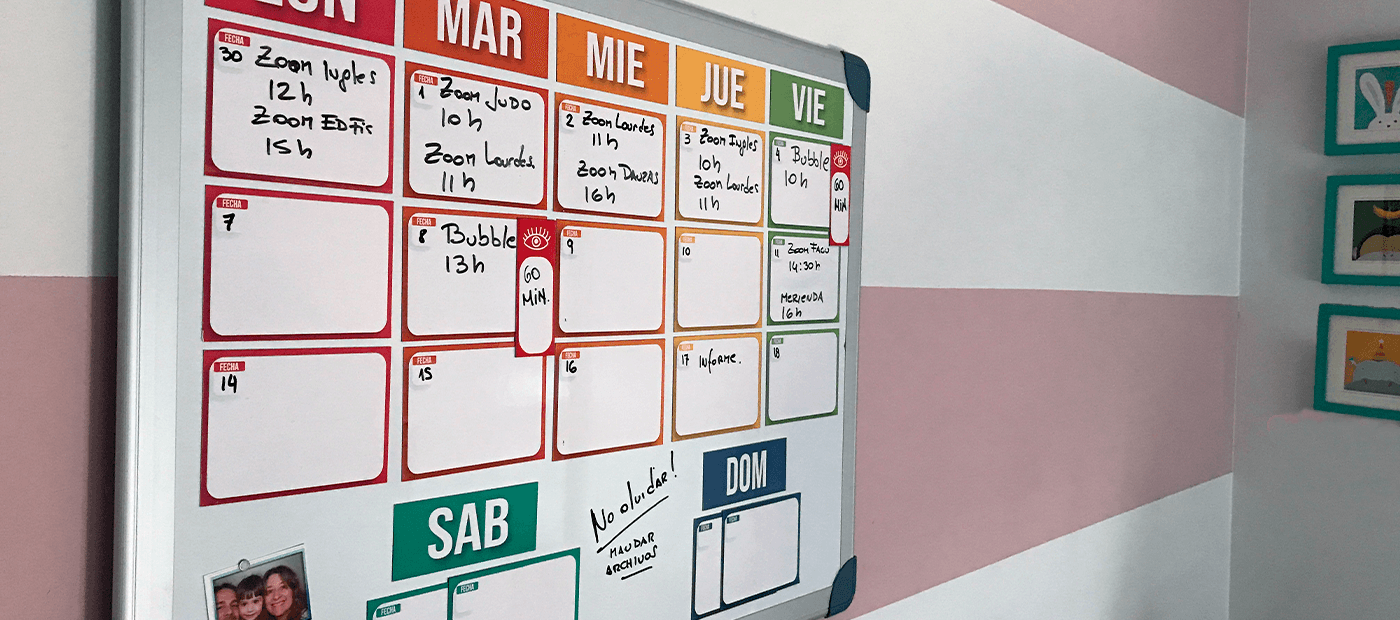 LUN
MAR
MIE
JUE
VIE
FECHA
30 Zoom Ingles
12h
Zoom ED Fis
15h
FECHA
1 Zoom Judo
10h
Zoom Lourdes
11h
FECHA
2 Zoom Lourdes
11h
Zoom Danzas
16h
FECHA
3 Zoom Ingles
10h
Zoom Lourdes
11h
FECHA
4 Bubble
10h
60
MIN.
FECHA
7
FECHA
8 Bubble
13h
60
MIN.
FECHA
9
FECHA
10
FECHA
11 Zoom FACU
14:30h
MERIENDA
16h
FECHA
14
FECHA
15
FECHA
16
FECHA
17 Informe.
FECHA
18
SAB
FECHA
FECHA
No olvidar!
MANDAR
ARCHIVOS
DOM
FECHA
FECHA